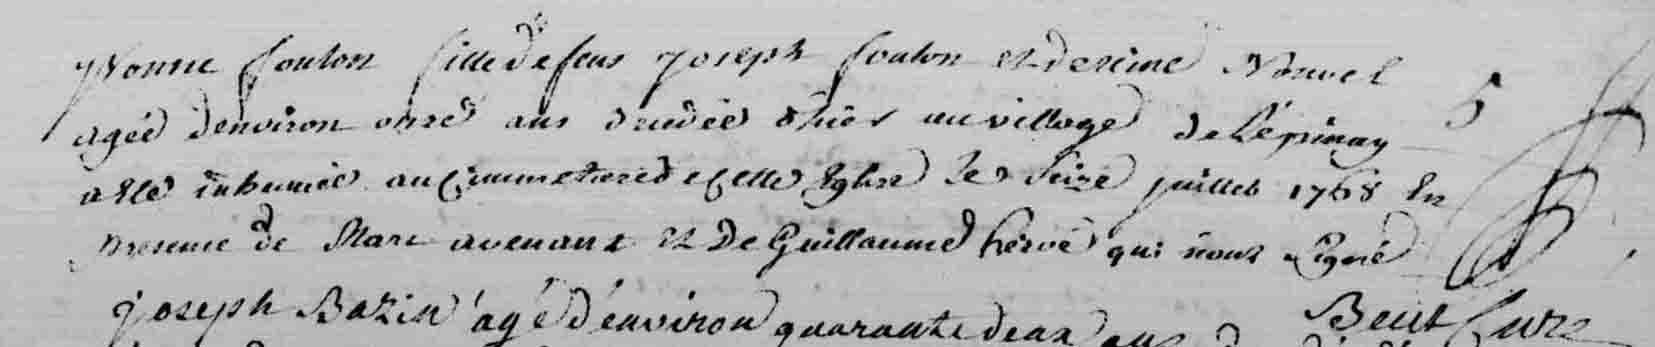 yvonne foulon fille de feus joseph foulon et de reine Nouvel
agée denviron onze ans decedée d'hier au village de L'épinay
a été inhumée au cimmetiere de cette Eglise le seize juillet 1768 En
presence de Marc avenant et De Guillaume hervé qui n'ont signé
5
Beut Curé
joseph Bazin âgé d'environ quarante deux ans